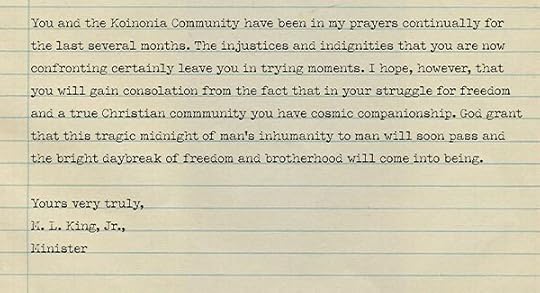 You and the Koinonia Community have been in my prayers continually for
the last several months. The injustices and indignities that you are now
confronting certainly leave you in trying moments. I hope, however, that
you will gain consolation from the fact that in your struggle for freedom
and a true Christian commmunity you have cosmic companionship. God grant
that this tragic midnight of man's inhumanity to man will soon pass and
the bright daybreak of freedom and brotherhood will come into being.
Yours very truly,
M. L. King, Jr.,
Minister